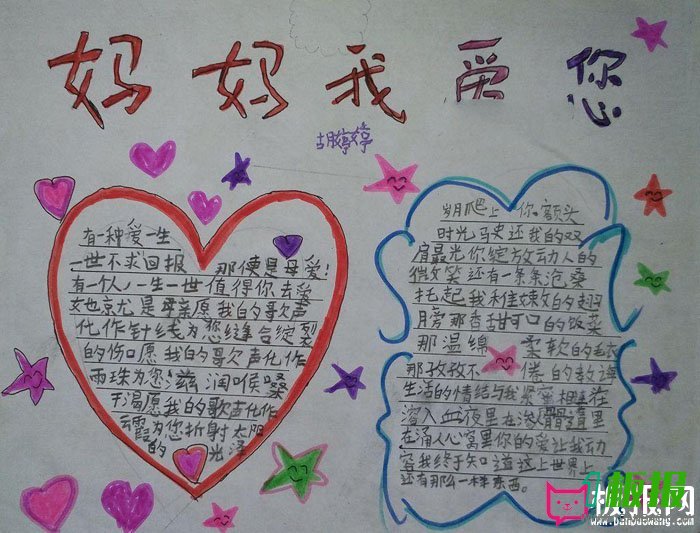 妈妈我爱您
胡婷婷
有一种爱一生
一世不求回报 那便是母爱!
有一个人,一生一世值得你去爱
她就是母亲愿我的歌声
化作针线为您缝合绽裂
的伤口愿我的歌声化作
雨珠为您滋润喉嗓
干渴愿我的歌声化作
云霞为您折射太阳
的 光泽
岁月爬上你额头
时光 还我的双
肩最光你绽放动人的
微笑还有一条条 桑
托起我稚嫩的翅
膀那香甜可口的饭菜
那温绵 柔软的毛衣
那孜孜不 倦的教诲
生活的情结与我紧密相连在
溶入血液里在 里
在涌人心窝里你的爱让我动
容我终于知道这上世界上
还有那么一样东西。
板报网
www.banbaowang.com